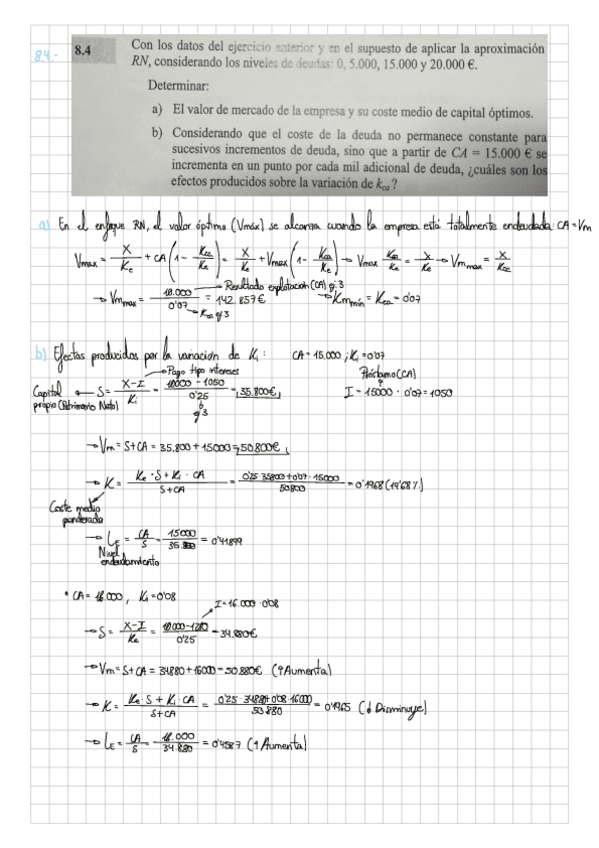 8.4-
8.4 Con los datos del ejercicio anterior y en el supuesto de aplicar la aproximación
RN, considerando los niveles de deudas: 0, 5.000, 15.000 y 20.000 €.
Determinar:
a) El valor de mercado de la empresa y su coste medio de capital óptimos.
b) Considerando que el coste de la deuda no permanece constante para
sucesivos incrementos de deuda, sino que a partir de CA = 15.000 € se
incrementa en un punto por cada mil adicional de deuda, ¿cuáles son los
efectos producidos sobre la variación de k
a) En el enfoque RN, el valor óptimo (Vmáx) se alcanza cuando la empresa está totalmente endeudada: CA=Vm
Vmax = X/Ke + CA(1 - Kca/Ke) = X/Ke + Vmax(1 - Kca/Ke) → Vmax Kca/Ke = X/Ke → Vmmax = X/Kca
Resultado explotación (CA) ej.3
→ Vmmax = /0'07 = 142.857€ → Kmmín = Kca = 0'07
Kca ej3
b) Efectos producidos por la variación de Ki: CA = 15,000 ; Ki = 0'07
Pago tipo intereses
Préstamo(CA)
Capital propio (Patrimonio Neto) ← S = X-I/Ki = 10000 - 1050/0'25 = 35.800€ I = 15000 · 0'07 = 1050
ej3
→ Vm = S+CA = 35.800 + 15000 = 50.800€
→ K = Ke · S + Ki · CA/S+CA = 0'25·35800+0'07·15000/50800 = 0'1968 (19'68%)
Coste medio
ponderado
→ LE = CA/S = 15000/35.800 = 0'41899
Nivel
endeudamiento
• CA = 16.000, Ki = 0'08
I = 16.000 · 0'08
→ S = X-I/Ke = 10000-1280/0'25 = 34.880€
→ Vm = S+CA = 34880 + 16000 = 50.880€ (↑Aumenta)
→ K = Ke · S + Ki · CA/S+CA = 0'25·34880+0'08·16000/50880 = 0'1965 (↓ Disminuye)
→ LE = CA/S = 16.000/34.880 = 0'4587 (↑ Aumenta)